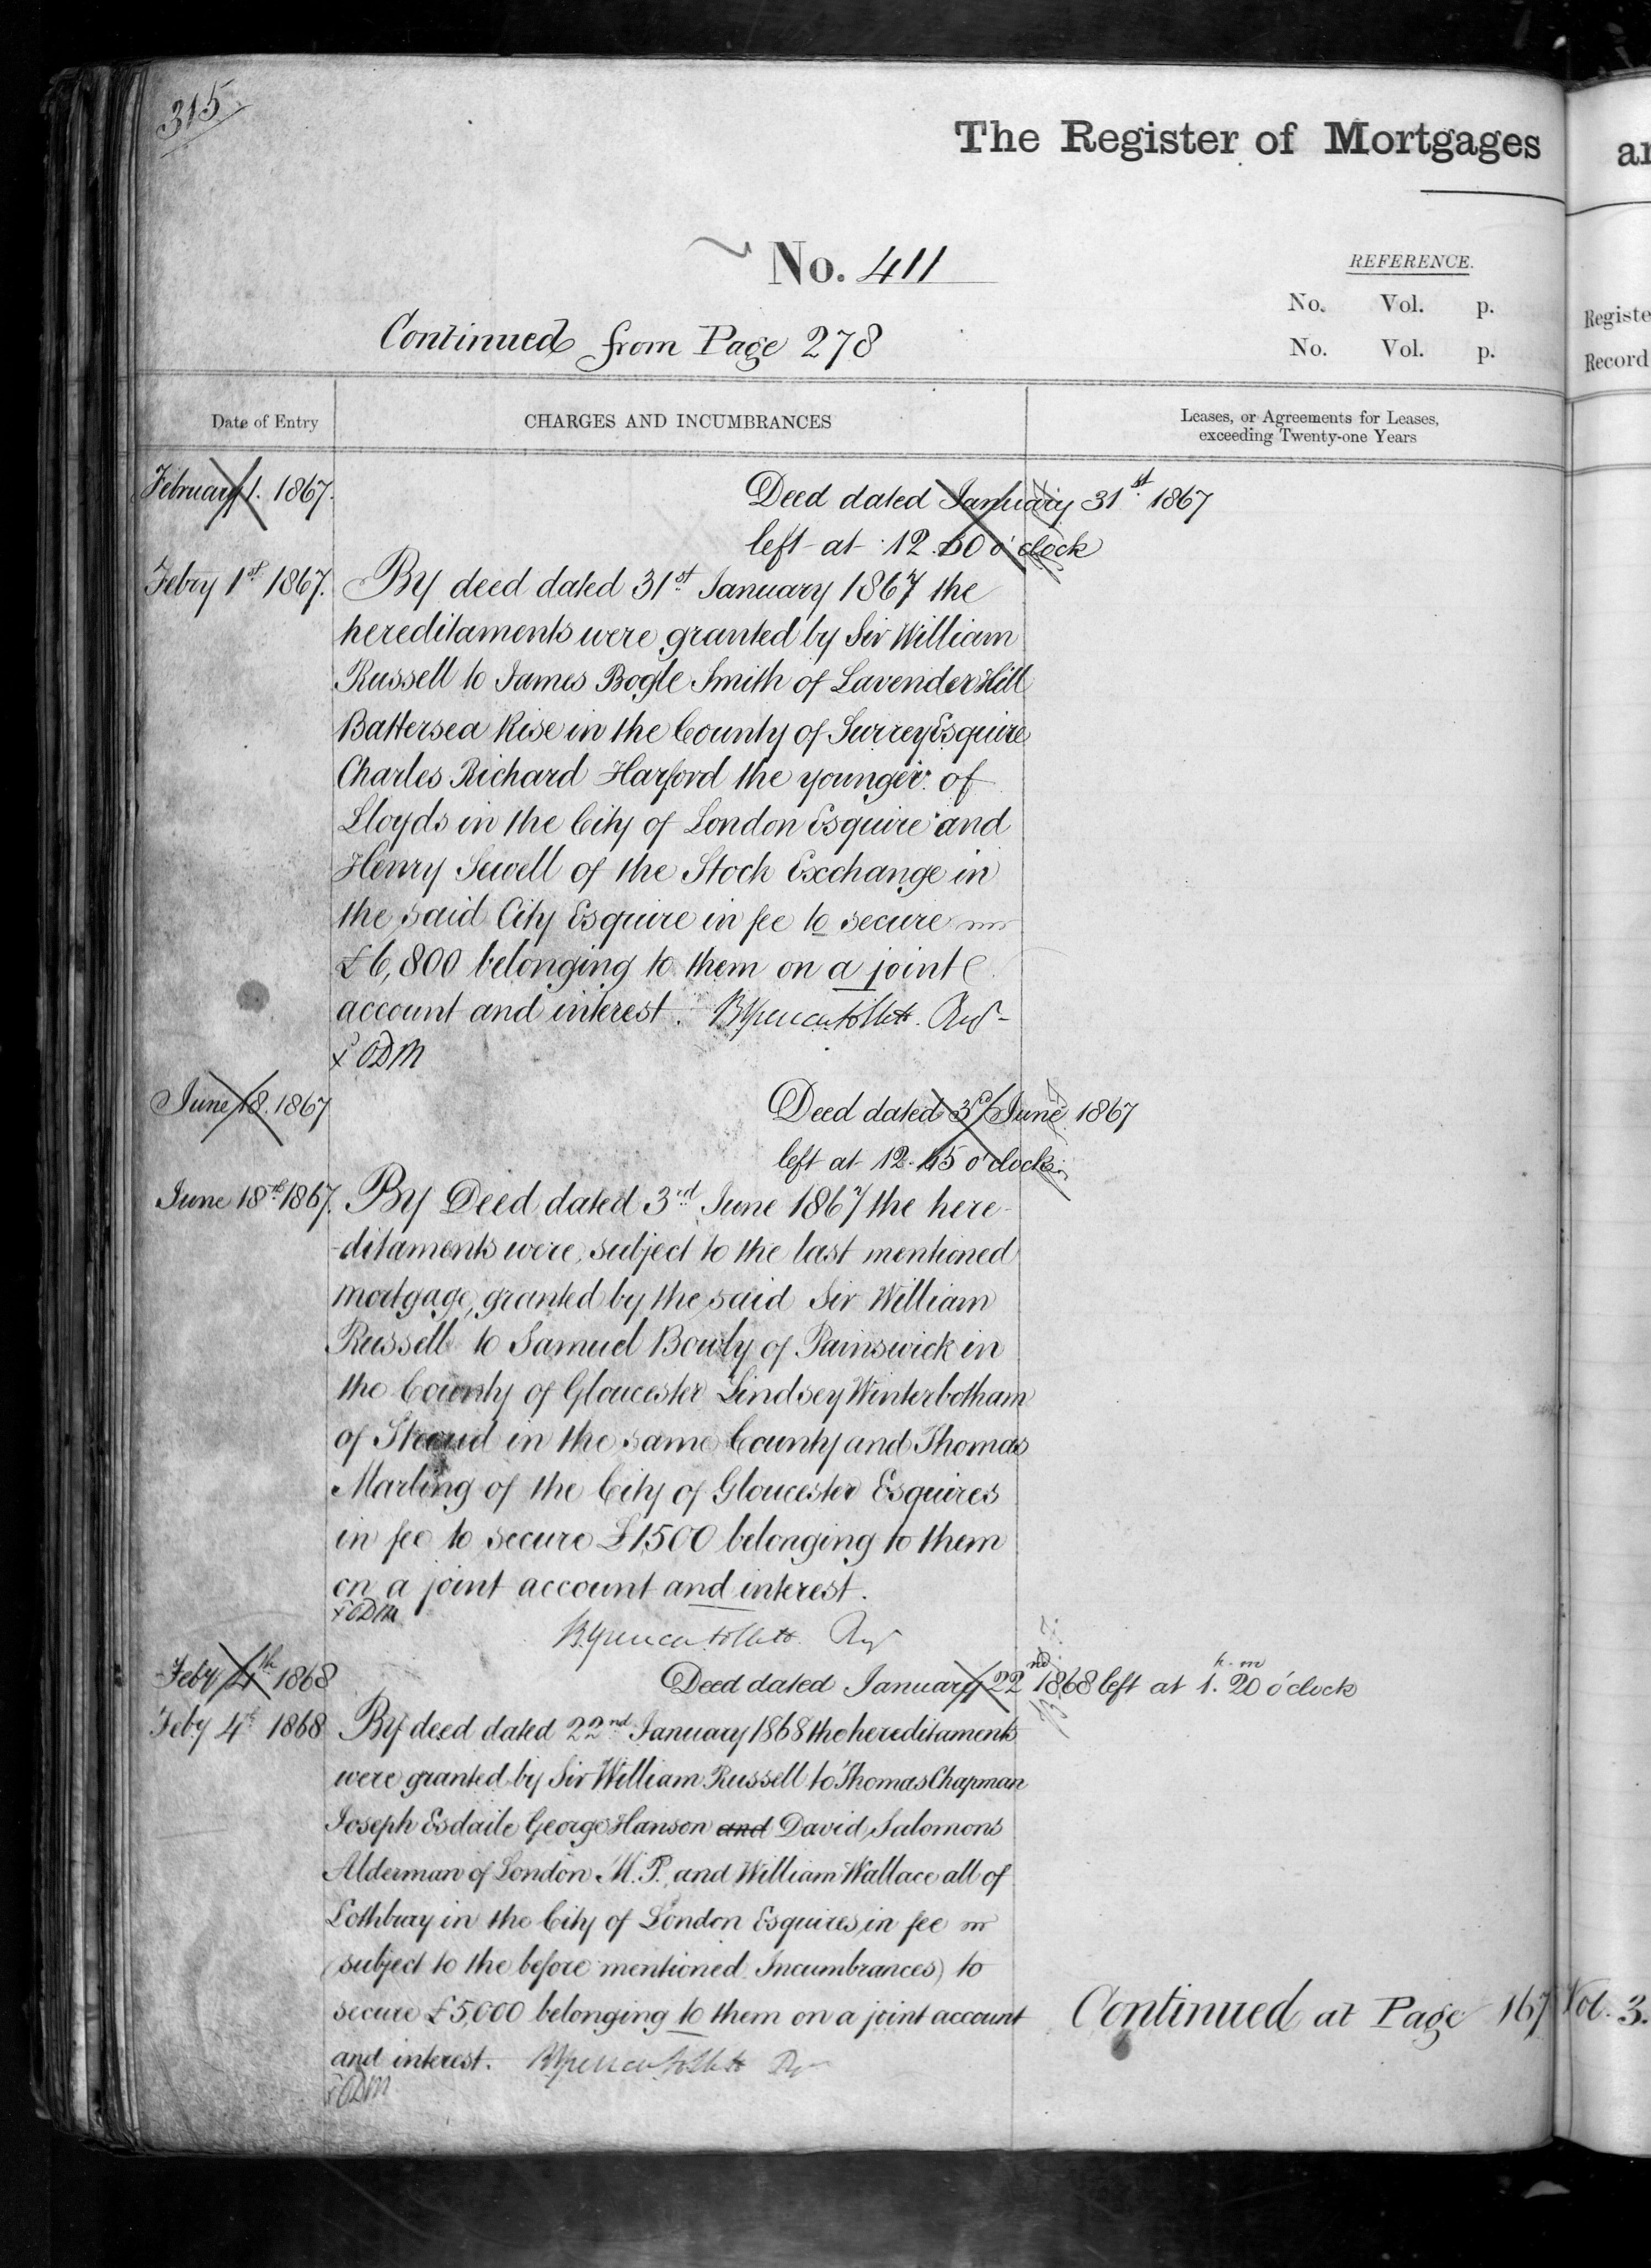 315
The Register of Mortgages
No. 411
REFERENCE.
No. Vol. p.
No. Vol. p.
Continued from Page 278
Date of Entry
CHARGES AND INCUMBRANCES
Leases, or Agreements for Leases,
exceeding Twenty-one Years
February 1. 1867.
Deed dated January 31st. 1867
left at 12.50 o'clock
Febry 1st 1867.
By deed dated 31st. January 1867 the
hereditaments were granted by Sir William
Russell to James Bogle Smith of Lavender Hill
Battersea Rise in the County of Surrey Esquire
Charles Richard Harford the younger of
Lloyds in the City of London Esquire and
Henry Sewell of the Stock Exchange in
the said City Esquire in fee to secure
£6,800 belonging to them on a joint
account and interest.
x ODM
June 18. 1867
Deed dated 3d June 1867
left at 12.45 o'clock
June 18th 1867.
By Deed dated 3rd June 1867 the here-
-ditaments were, subject to the last mentioned
mortgage, granted by the said Sir William
Russell to Samuel Bowly of Painswick in
the County of Gloucester Lindsey Winterbotham
of Stroud in the same County and Thomas
Marling of the City of Gloucester Esquires
in fee to secure £1500 belonging to them
on a joint account and interest.
x ODM
Feby 4th 1868
Deed dated January 22nd 1868 left at 1.h 20m o'clock
Feby 4th 1868
By deed dated 22nd January 1868 the hereditaments
were granted by Sir William Russell to Thomas Chapman
Joseph Esdaile George Hanson and David Salomons
Alderman of London M.P. and William Wallace all of
Lothbury in the City of London Esquires, in fee
(subject to the before mentioned Incumbrances) to
secure £5,000 belonging to them on a joint account
and interest.
x ODM
Continued at Page 167 Vol. 3.
ar
Registe
Record